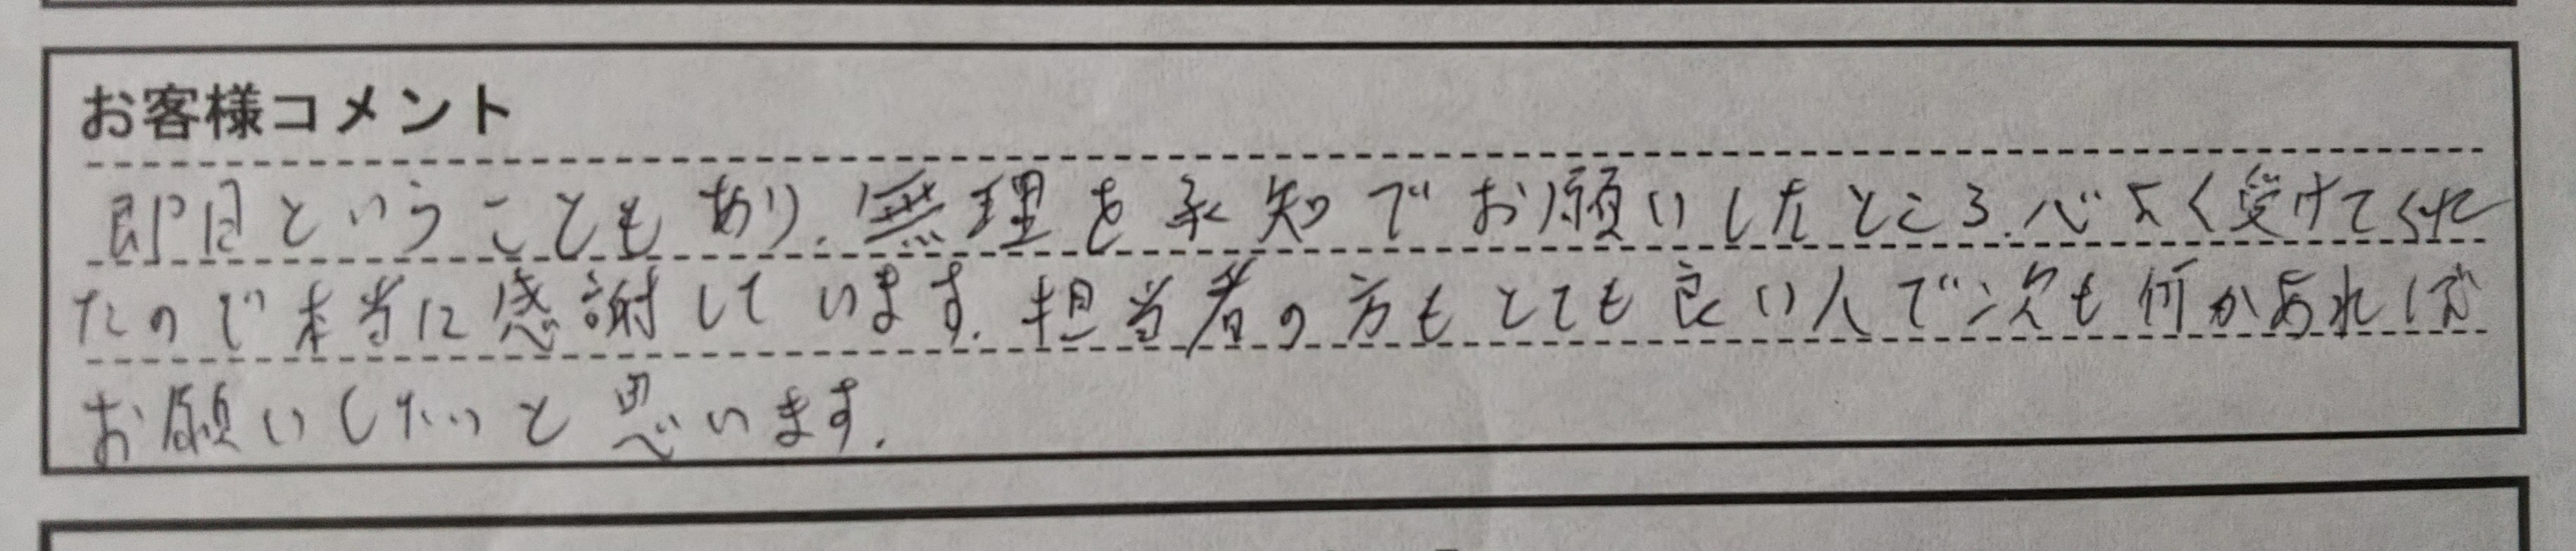 お客様コメント
即日ということもあり、無理を承知でお願いしたところ、心よく受けてくれ
たので本当に感謝しています。担当者の方もとても良い人で次も何かあれば
お願いしたいと思います。